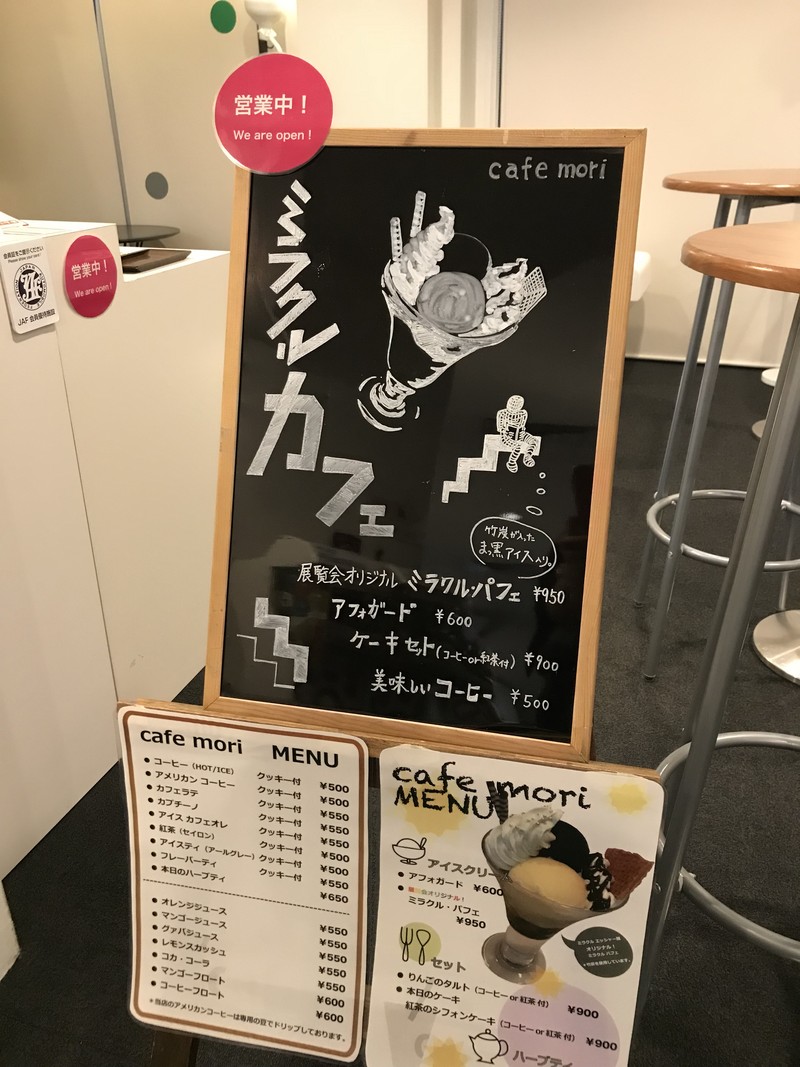 営業中！
We are open！
cafe mori
ミラクル
カフェ
会員証をご提示ください
JAF
JAF 会員優待施設
営業中！
We are open！
竹炭が入った
まっ黒アイス入り。
展覧会オリジナル ミラクル・パフェ ¥950
アフォガード ¥600
ケーキセット(コーヒーor紅茶付) ¥900
美味しいコーヒー ¥500
cafe mori MENU
● コーヒー（HOT/ICE） クッキー付 ¥500
● アメリカン コーヒー クッキー付 ¥500
● カフェラテ クッキー付 ¥550
● カプチーノ クッキー付 ¥550
● アイス カフェオレ クッキー付 ¥550
● 紅茶（セイロン） クッキー付 ¥500
● アイスティ（アールグレー） クッキー付 ¥500
● フレーバーティ クッキー付 ¥550
● 本日のハーブティ ¥650
● オレンジジュース ¥550
● マンゴージュース ¥550
● グァバジュース ¥550
● レモンスカッシュ ¥550
● コカ・コーラ ¥550
● マンゴーフロート ¥600
● コーヒーフロート ¥600
＊当店のアメリカンコーヒーは専用の豆でドリップしております。
cafe mori
MENU
アイスクリー
● アフォガード ¥600
会オリジナル！
● ミラクル・パフェ
¥950
ミラクル エッシャー展
オリジナル！
ミラクル パフェ
セット
● りんごのタルト（コーヒー or 紅茶 付） ¥900
● 本日のケーキ
紅茶のシフォンケーキ（コーヒー or 紅茶 付） ¥900
ハーブティ